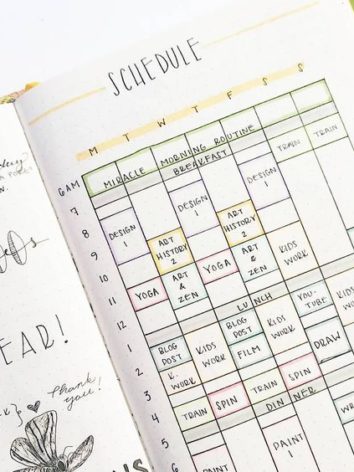 SCHEDULE
M T W T F S S
6AM MIRACLE MORNING ROUTINE TRAIN TRAIN
7 BREAKFAST
8 DESIGN 1 DESIGN 1 DESIGN 1
9 ART HISTORY 2 ART HISTORY 2
10 ART & ZEN ART & ZEN KIDS WORK
11 YOGA YOGA
12 LUNCH
1 BLOG POST KIDS WORK BLOG POST KIDS WORK YOU-TUBE KIDS WORK
2 K. WORK FILM DRAW
3 TRAIN SPIN TRAIN SPIN
4 DINNER
5 PAINT 1
6 PAINT 1
EAD!
Thank you!